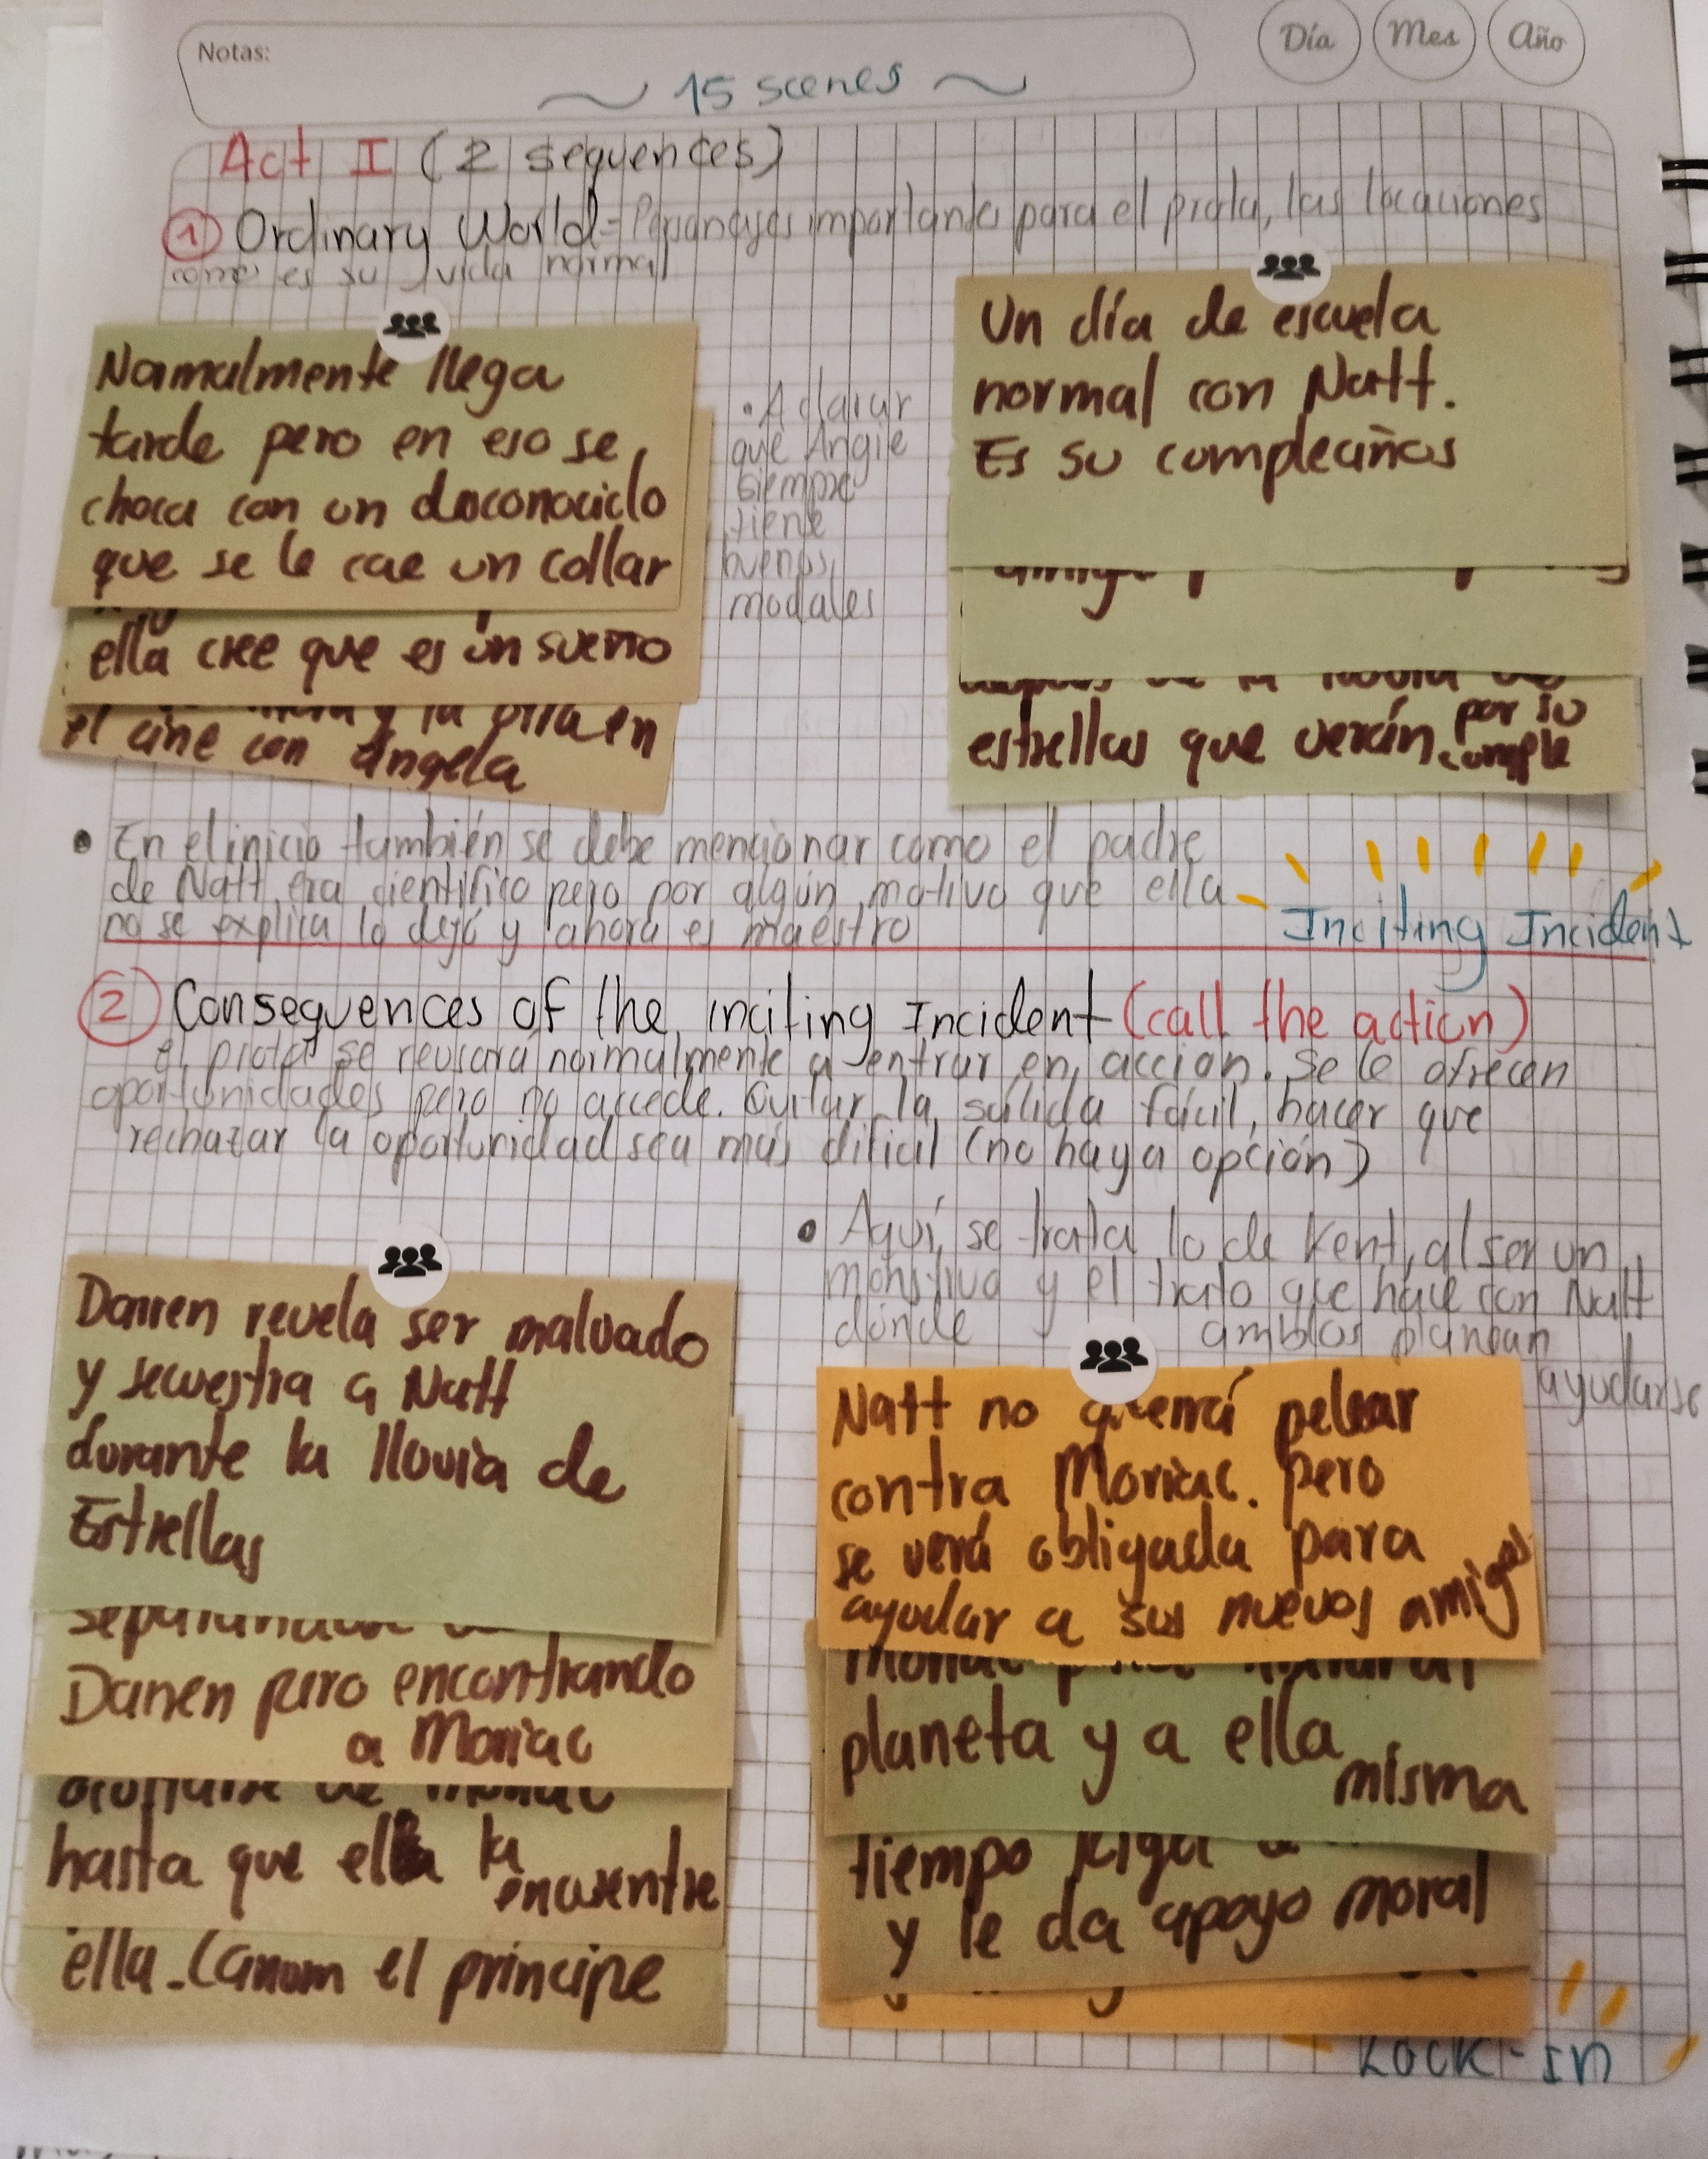 Notas:
Día Mes Año
~ 15 scenes ~
Act I (2 sequences)
1 Ordinary World = Personajes importantes para el prota, las locaciones
como es su vida normal
Normalmente llega
tarde pero en eso se
choca con un desconocido
que se le cae un collar
ella cree que es un sueño
y la otra en
el cine con Angela
• Aclarar
que Angie
siempre
tiene
buenos
modales
Un día de escuela
normal con Natt.
Es su cumpleaños
estrellas que verán por su
cumple
• En el inicio también se debe mencionar como el padre
de Natt era científico pero por algún motivo que ella
no se explica lo dejó y ahora es maestro
Inciting Incident
2 Consequences of the inciting Incident (call the action)
el prota se reusará normalmente a entrar en acción. Se le ofrecen
oportunidades pero no accede. Quitar la salida fácil, hacer que
rechazar la oportunidad sea más dificil (no haya opción)
• Aquí se trata lo de Kent, al ser un
monstruo y el trato que hace con Natt
dónde ambos planean
ayudarse
Darren revela ser malvado
y secuestra a Natt
durante la lluvia de
Estrellas
Darren pero encontrando
a Moriac
hasta que ella la
encuentre
ella. Canom el principe
Natt no querrá pelear
contra Moriac. Pero
se verá obligada para
ayudar a sus nuevos amigos
planeta y a ella
misma
tiempo
y le da apoyo moral
Lock-In